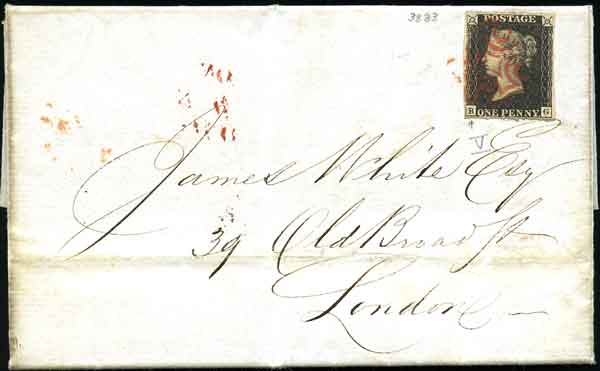 3883
POSTAGE
B G
ONE PENNY
V
James White Esq
39 Old Broad St
London